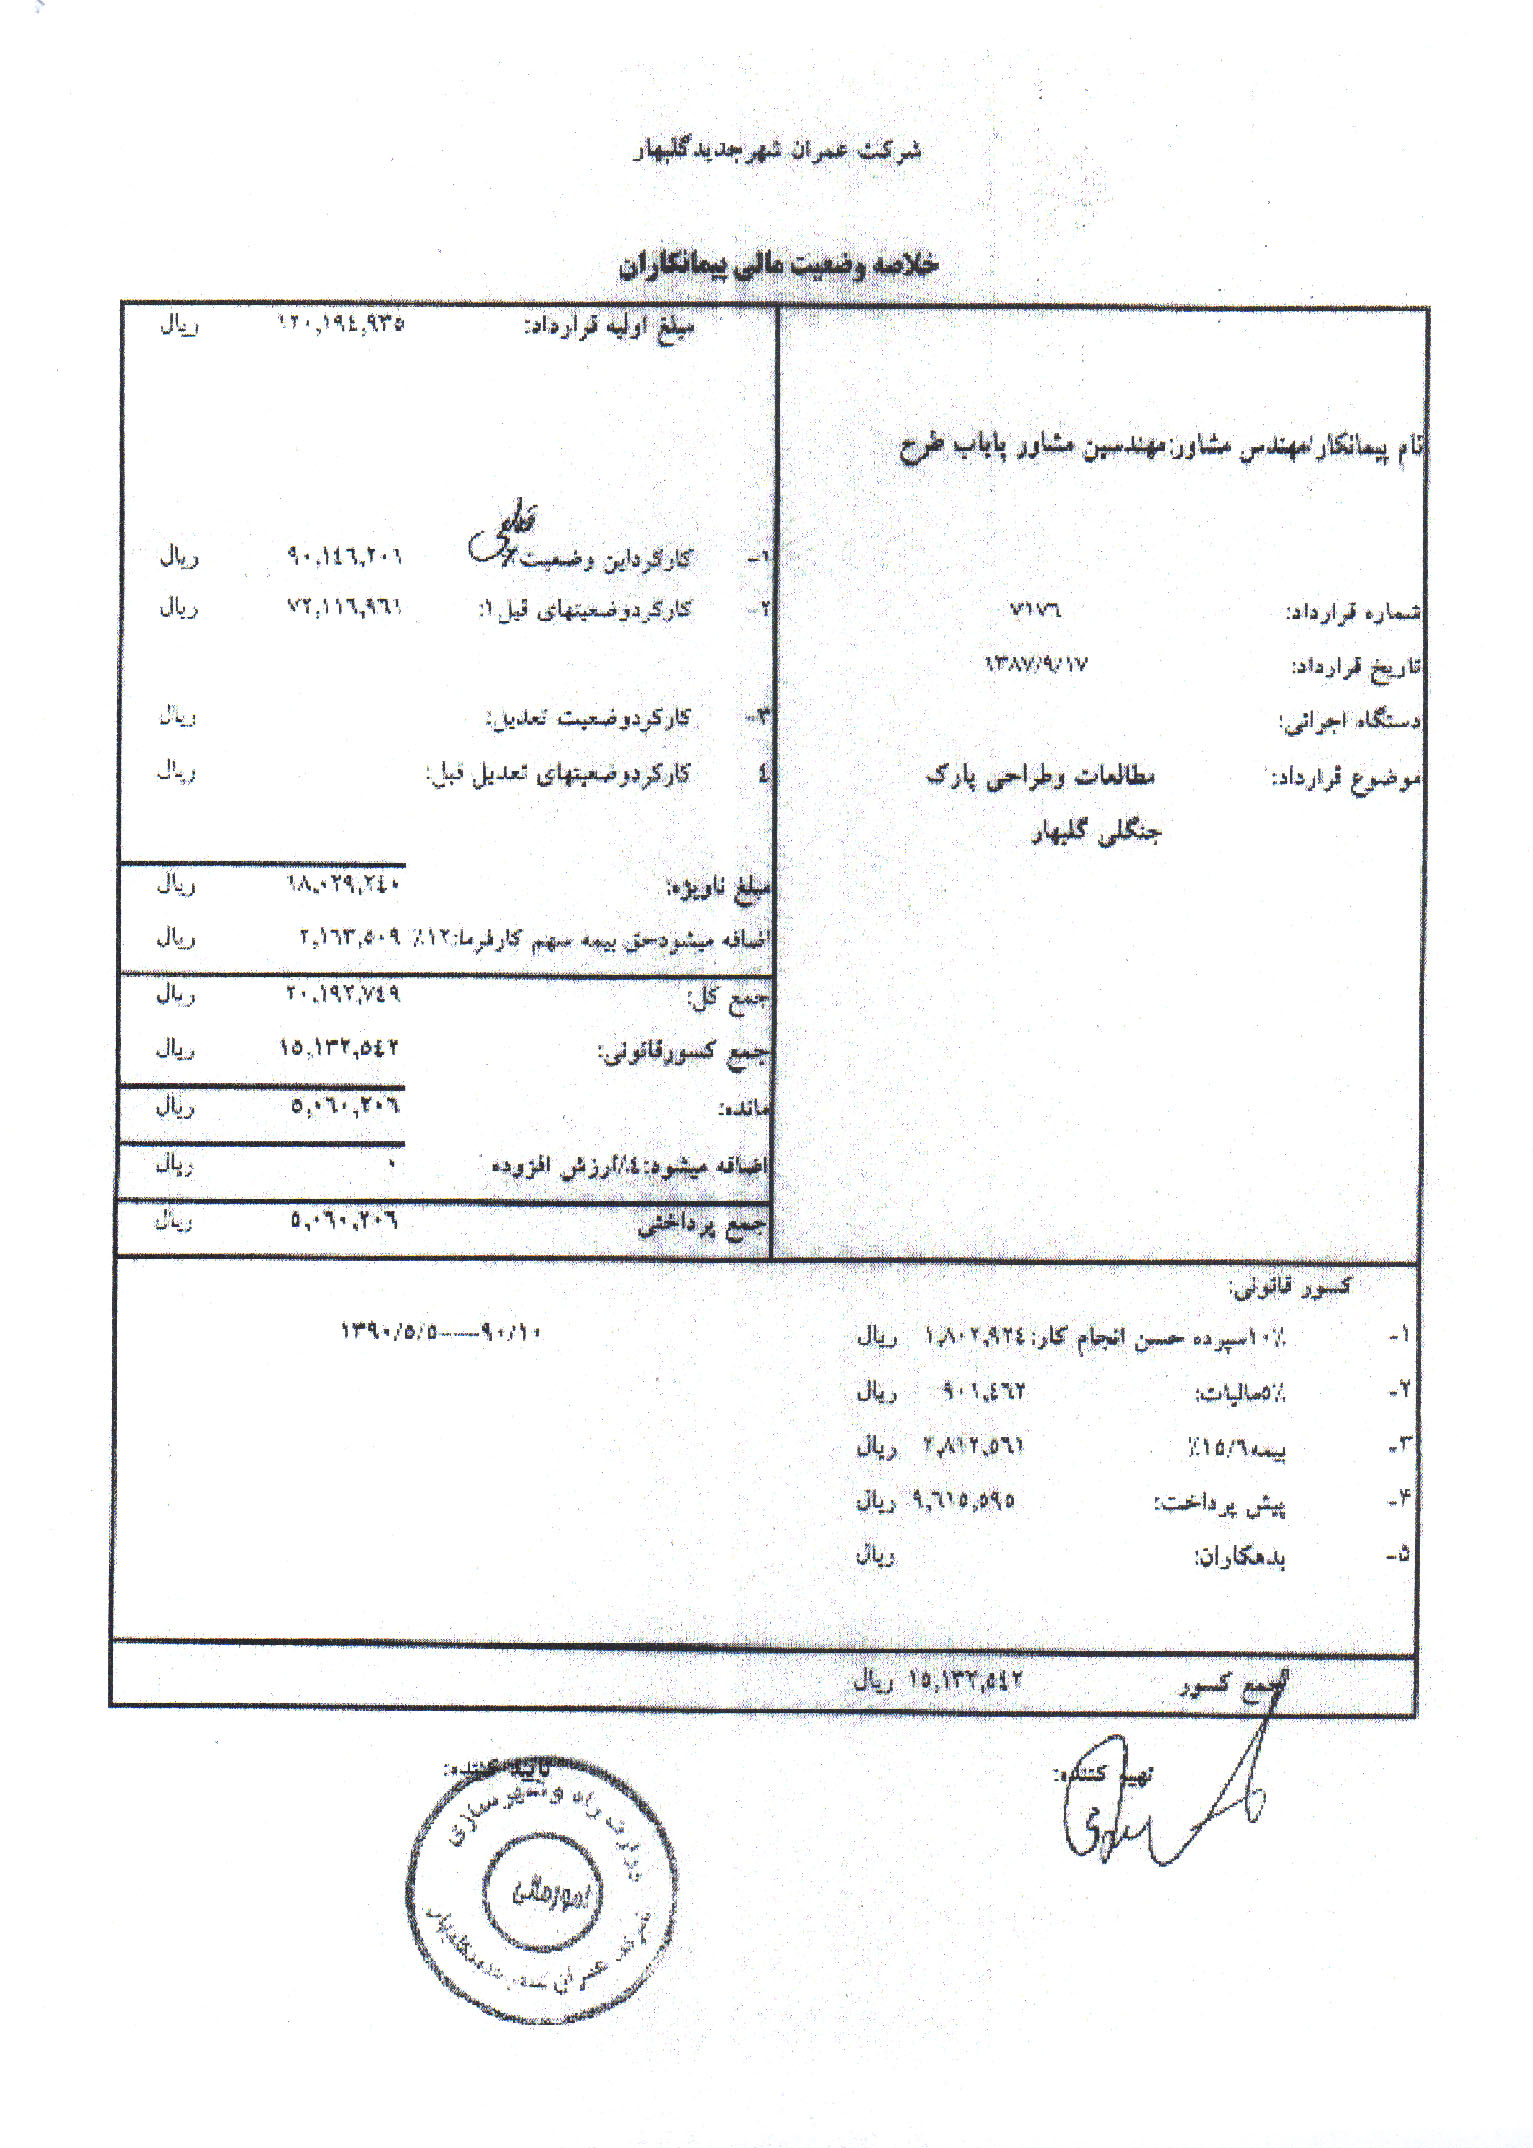 شرکت عمران شهرجدیدگلبهار
خلاصه وضعیت مالی پیمانکاران
نام پیمانکار/مهندس مشاور:مهندسین مشاور پایاب طرح
شماره قرارداد: ۷۱۷٦
تاریخ قرارداد: ۱۳۸۷/۹/۱۷
دستگاه اجرائی:
موضوع قرارداد: مطالعات وطراحی پارک
جنگلی گلبهار
مبلغ اولیه قرارداد: ۱۲۰,۱۹٤,۹۳٥ ریال
۱- کارکرداین وضعیت ۹۰,۱٤٦,۲۰٦ ریال
۲- کارکردوضعیتهای قبل۱: ۷۲,۱۱٦,۹٦٦ ریال
۳- کارکردوضعیت تعدیل: ریال
٤ کارکردوضعیتهای تعدیل قبل: ریال
مبلغ ناویژه: ۱۸,۰۲۹,۲٤۰ ریال
اضافه میشودحق بیمه سهم کارفرما:۱۲٪ ۲,۱٦۳,٥۰۹ ریال
جمع کل: ۲۰,۱۹۲,۷٤۹ ریال
جمع کسورقانونی: ۱٥,۱۳۲,٥٤۲ ریال
مانده: ٥,۰٦۰,۲۰٦ ریال
اضافه میشود:٤٪ارزش افزوده ۰ ریال
جمع پرداختی ٥,۰٦۰,۲۰٦ ریال
کسور قانونی:
۱- ۱۰٪سپرده حسن انجام کار: ۱,۸۰۲,۹۲٤ ریال ۹۰/۱۰-----۱۳۹۰/٥/٥
۲- ٥٪مالیات: ۹۰۱,٤٦۲ ریال
۳- بیمه۱٥/٦٪ ۲,۸۱۲,٥٦۱ ریال
۴- پیش پرداخت: ۹,٦۱٥,٥۹٥ ریال
۵- بدهکاران: ریال
جمع کسور ۱٥,۱۳۲,٥٤۲ ریال
تهیه کننده:
تایید کننده:
وزارت راه وشهرسازی
امورمالی
شرکت عمران شهرجدیدگلبهار